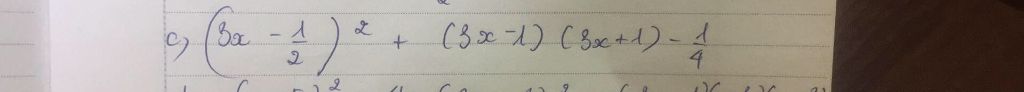 c) (3x - 1/2)² + (3x-1)(3x+1) - 1/4